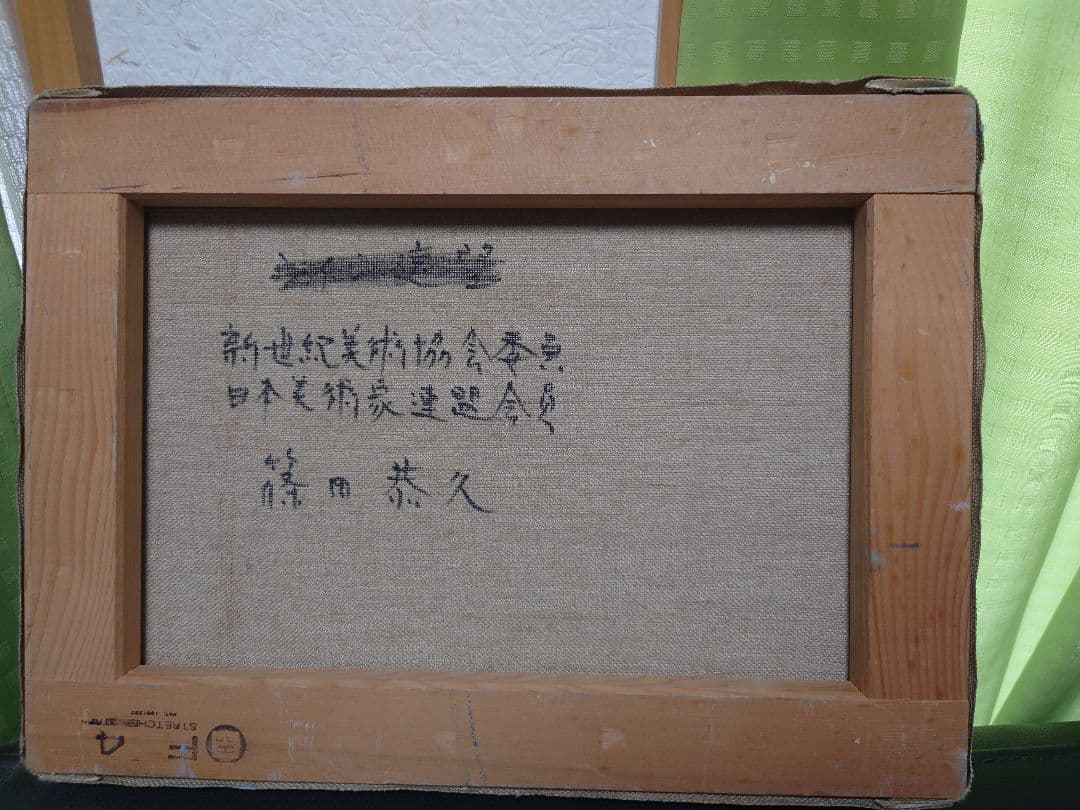 新世紀美術協会委員
日本美術家連盟会員
篠田恭久
F 4